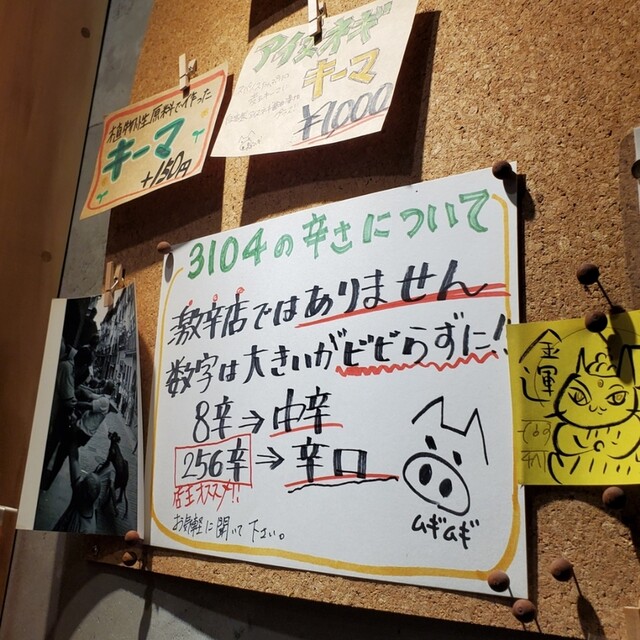 アイスネギ
キーマ
¥1,000
植物性原料で作った
キーマ
+150円
3104の辛さについて
激辛店ではありません
数字は大きいがビビらずに!!
8辛→中辛
256辛→辛口
店主オススメ!!
お気軽に聞いて下さい。
ムギムギ
金運